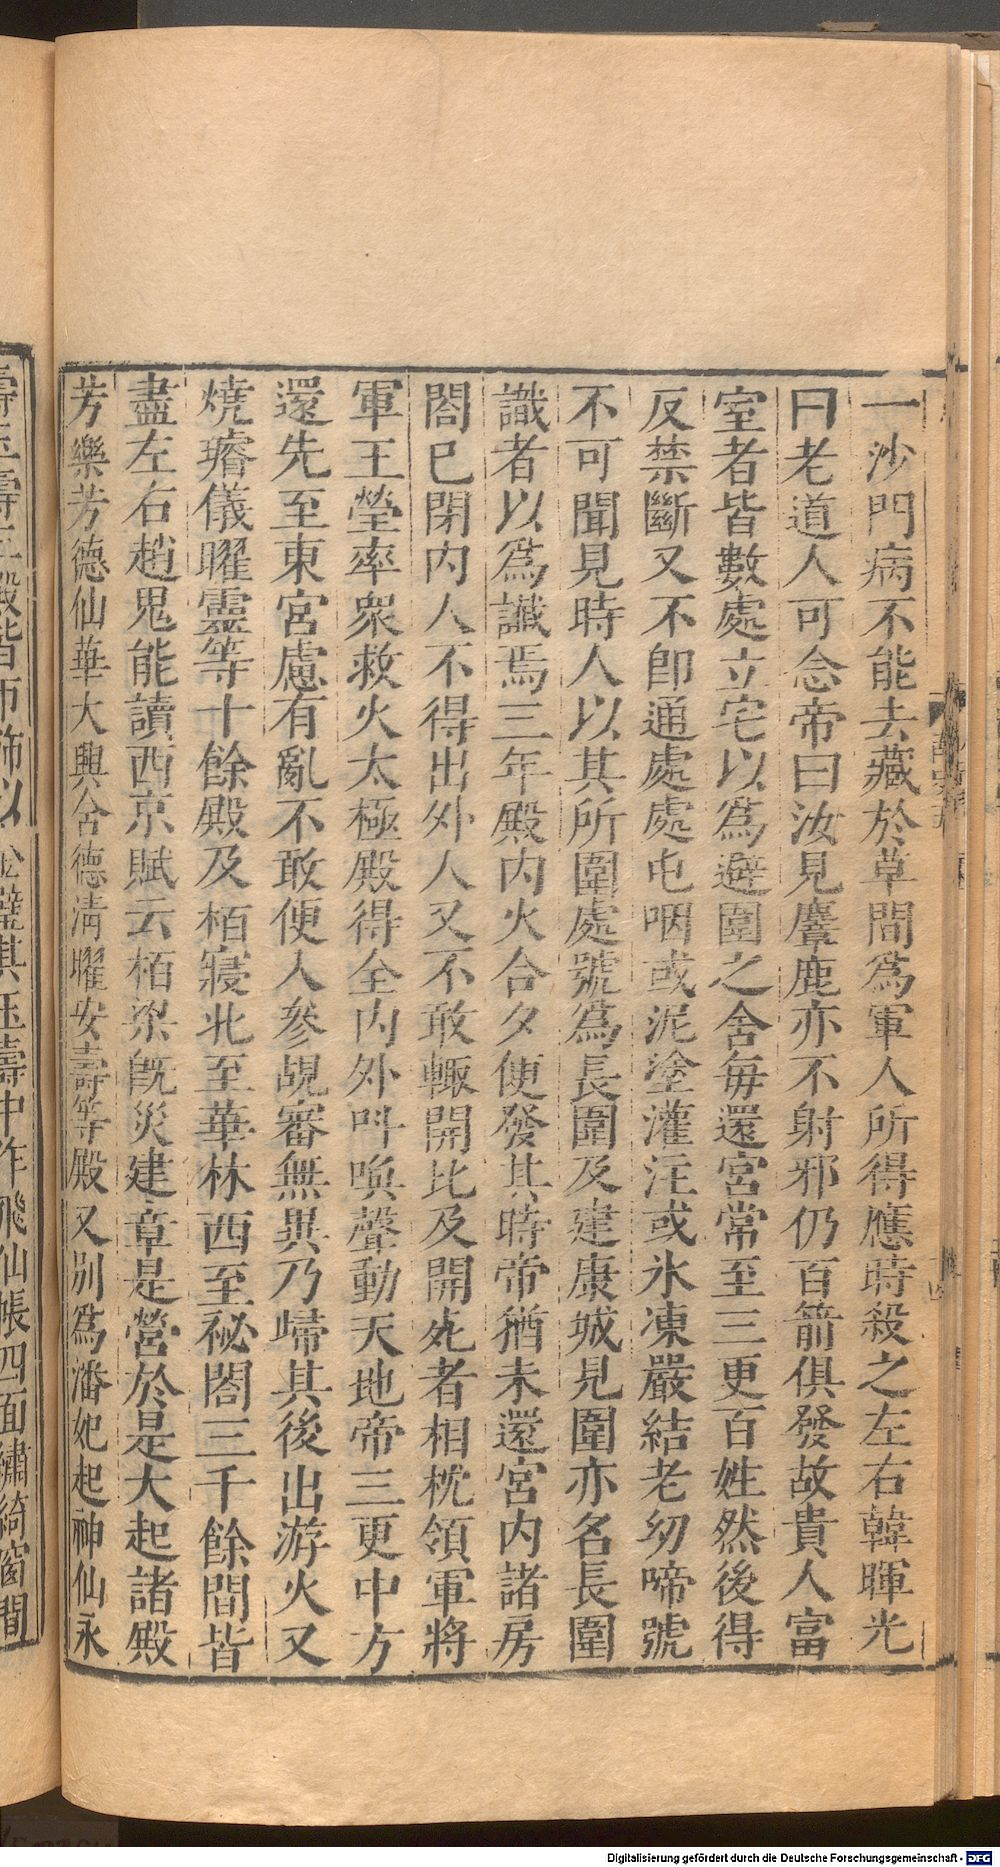 一沙門病不能去藏於草間爲軍人所得應時殺之左右韓暉光
曰老道人可念帝曰汝見麞鹿亦不射邪仍百箭俱發故貴人富
室者皆數處立宅以爲避圍之舍每還宮常至三更百姓然後得
反禁斷又不卽通處處屯咽或泥塗灌注或氷凍嚴結老幼啼號
不可聞見時人以其所圍處號爲長圍及建康城見圍亦名長圍
識者以爲讖焉三年殿内火合夕便發其時帝猶未還宮内諸房
閤已閉内人不得出外人又不敢輙開比及開死者相枕領軍將
軍王瑩率衆救火太極殿得全内外呌喚聲動天地帝三更中方
還先至東宮慮有亂不敢便入參覘審無異乃歸其後出游火又
燒璿儀曜靈等十餘殿及栢寢北至華林西至祕閤三千餘間皆
盡左右趙鬼能讀西京賦云栢梁旣災建章是營於是大起諸殿
芳樂芳德仙華大興含德淸曜安壽等殿又別爲潘妃起神仙永
壽玉壽三殿皆帀飾以金璧其玉壽中作飛仙帳四面繡綺窗間
Digitalisierung gefördert durch die Deutsche Forschungsgemeinschaft - DFG